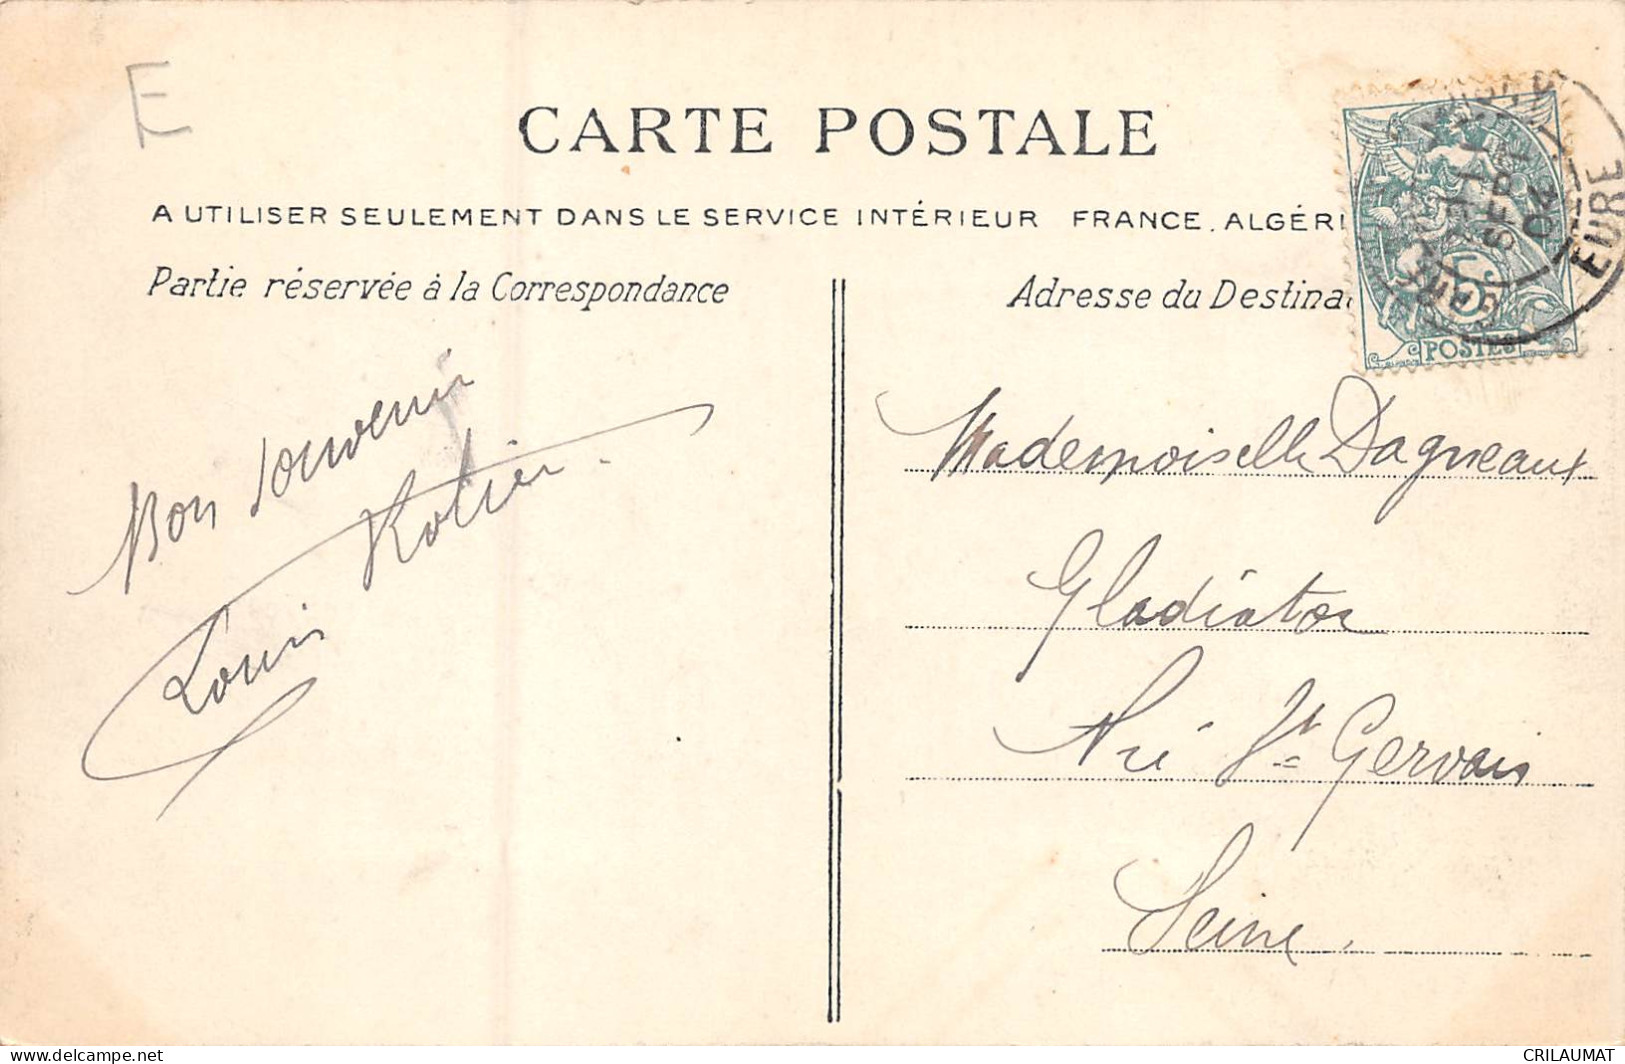 E
CARTE POSTALE
A UTILISER SEULEMENT DANS LE SERVICE INTÉRIEUR FRANCE, ALGÉRI
Partie réservée à la Correspondance
Adresse du Destina
Bon souvenir
Louis Rotier
Mademoiselle Dagneaux
Gladiator
Pré St Gervais
Seine.
5c
POSTES
SEPT
04
EURE
delcampe.net
CRILAUMAT